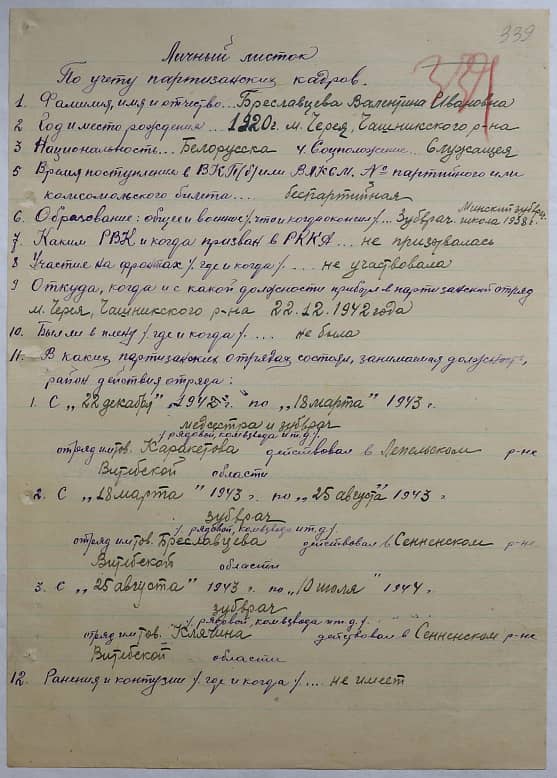 339
339
Личный листок
По учету партизанских кадров.
1. Фамилия, имя и отчество... Бреславцева Валентина Ивановна
2 Год и место рождения... 1920г. м. Черея, Чашникского р-на
3 Национальность... Белорусска 4. Соцположение... Служащая
5 Время поступления в ВКП/б/ или ВЛКСМ. № партийного или
комсомольского билета.... беспартийная
6. Образование: общее и военное/. что и когда окончил/... Зубврач. Минский зубврач.
школа 1938г.
7. Каким РВК и когда призван в РККА... не призывалась
8 Участие на фронтах /. где и когда/. ... не участвовала
9 Откуда, когда и с какой должности прибыл в партизанский отряд
м. Черея, Чашникского р-на 22.12.1942 года
10. Был ли в плену /. где и когда/. ... не была
11. В каких партизанских отрядах состоял, занимаемая должность,
район действия отряда:
1. С „22 декабря" 1942 г. по „18 марта" 1943 г.
медсестра и зубврач
/. рядовой, комвзвода и т.д./.
отряд им тов. Каракетова действовал в Лепельском р-не
Витебской области
2. С „18 марта" 1943 г. по „25 августа" 1943 г.
зубврач
/. рядовой, комвзвода и т.д./.
отряд им тов. Бреславцева действовал в Сенненском р-не
Витебской области
3. С „25 августа" 1943 г. по „10 июля" 1944 г.
зубврач
/. рядовой, комвзвода и т.д./.
отряд им тов. Клячина действовал в Сенненском р-не
Витебской области
12. Ранения и контузии /. где и когда/. ... не имеет